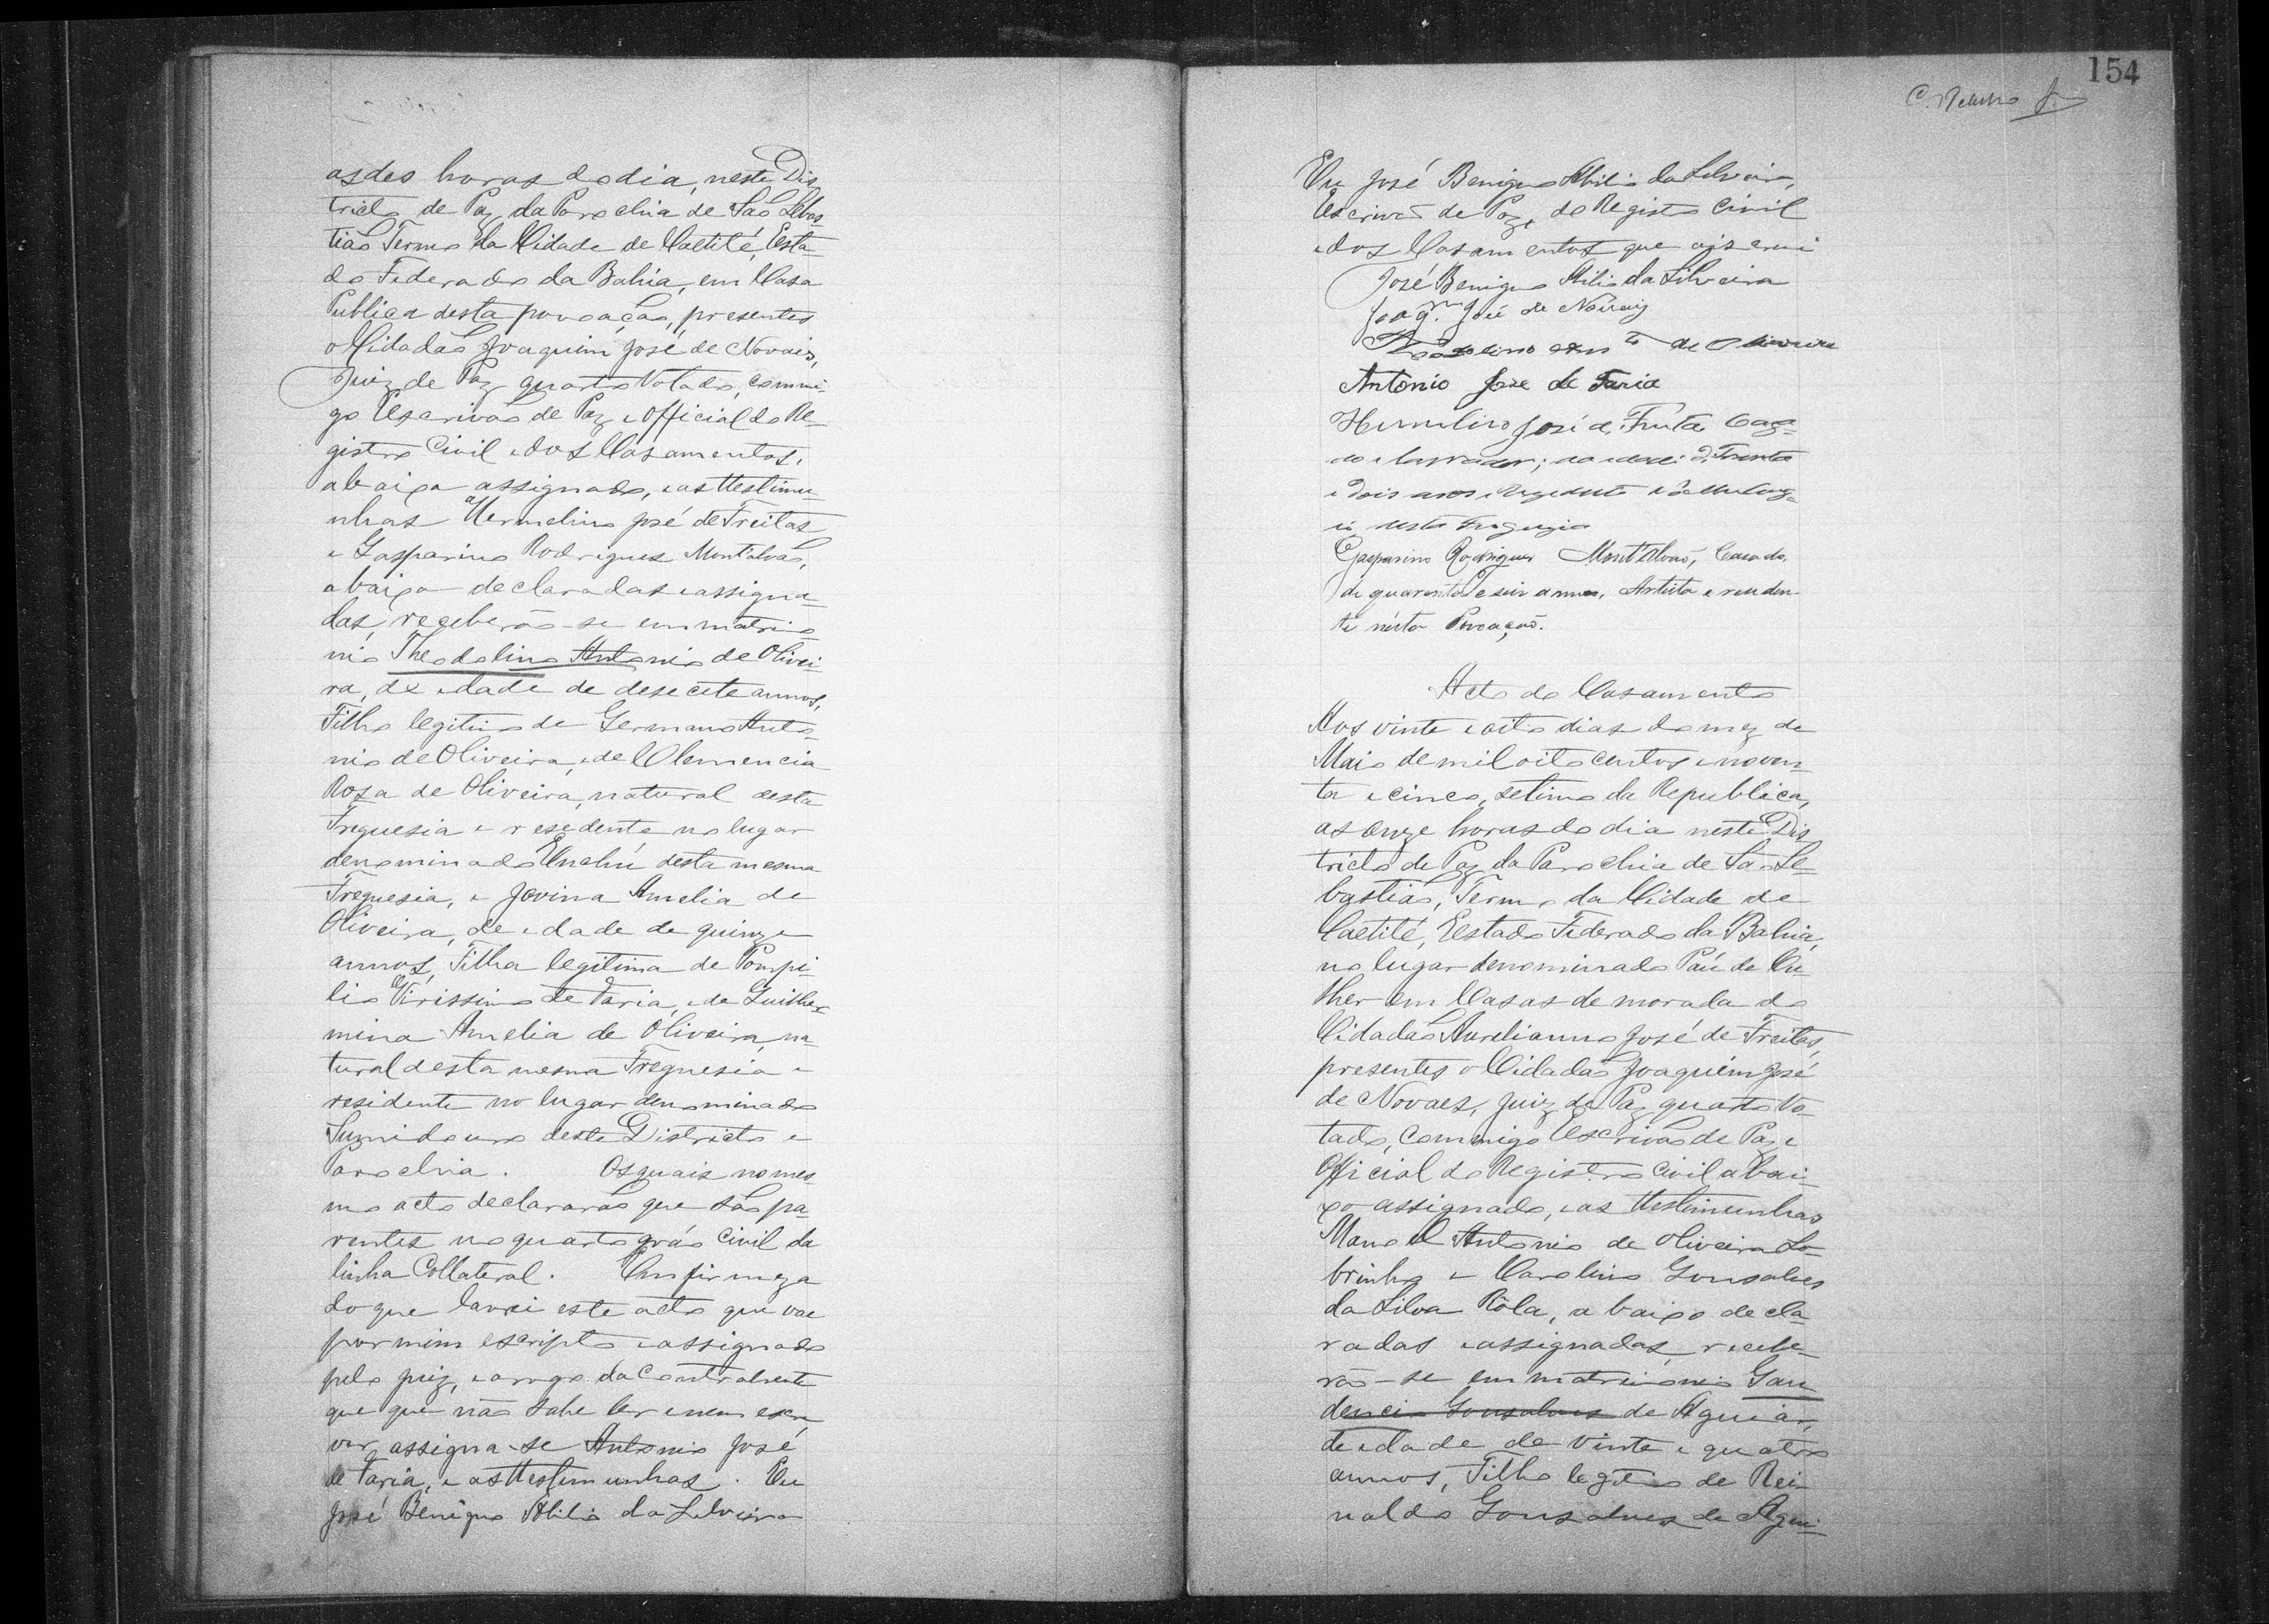 as des horas do dia, neste Dis
tricto de Paz da Parochia de São Sebas
tião Termo da Cidade de Caetité, Esta-
do Federado da Bahia, em Casa
Publica desta povoação, presentes
o Cidadão Joaquim José de Novais,
Juiz de Paz quarto Votado, commi-
go Escrivão de Paz e Official do Re-
gistro Civil e dos Casamentos,
abaixo assignado, e as ttestimu-
nhas Hermelino José de Freitas
e Gasparino Rodrigues Montalvão,
abaixo declaradas e assigna-
das, receberão-se em matrio
nio Theodolino Antonio de Olivei-
ra, de edade de desecete annos,
Filho legitimo de Germano Anto-
nio de Oliveira, e de Clemencia
Roza de Oliveira, natural desta
Freguesia e resedente no lugar
denominado Enchú desta mesma
Freguesia, e Jovina Amelia de
Oliveira, de edade de quinze
annos, Filha legitima de Pompi-
lio Virissimo de Faria, e de Guilher-
mina Amelia de Oliveira, na-
tural desta mesma Freguesia e
residente no lugar denominado
Sumidouro deste Districto e
Parochia. Os quais nomes
mo acto declararão que são pa-
rentes no quarto gráo Civil da
linha Collateral. Em firmeza
do que lavrei este acto que vae
por mim escripto e assignado
pelo juiz, e arogo da Contrahente
que que não sabe ler e nem escre
ver, assigna-se Antonio José
de Faria, e as ttestimunhas. Eu
José Benigno Abilio da Silveira
154
C.
Eu José Benigno Abilio da Silveira,
Escrivão de Paz, do Registo Civil
e dos Casamentos que o escrevi
José Benigno Abilio da Silveira
Joaqm José de Novaiz
Theodolino Anto de Oliveira
Antonio Jose de Faria
Hermelino José de Freitas Caza-
do e lavrador; de edade de Trenta
e dois anos e Rezedente
desta Freguezia
Gasparino Rodrigues Montalvão, Casado,
de quarenta e seis annos, Artista e residen-
te nésta Povoação.
Acto do Casamento
Aos vinte e oito dias do mez de
Maio de mil oito centos e noven-
ta e cinco, setimo da Republica,
as onze horas do dia neste Dis
tricto de Paz da Parochia de São Se-
bastião, Termo da Cidade de
Caetité, Estado Federado da Bahia,
no lugar denominado Páu de Cu-
lher em Casas de morada do
Cidadão Aurelianno José de Freitas,
presentes o Cidadão Joaquim José
de Novaes, Juiz de Paz quarto Vo-
tado, Commigo Escrivão de Paz e
Official do Registro Civil abai-
xo assignado, e as ttestimunhas
Manoel Antonio de Oliveira So-
brinho e Carolino Gonsalves
da Silva Rôla, abaixo decla-
radas e assignadas, recebe-
rão-se em matrimonio Gau
dencio Gonsalves de Aguiar,
de edade de vinte e quatro
annos, Filho legitimo de Rei-
naldo Gonsalves de Agui-